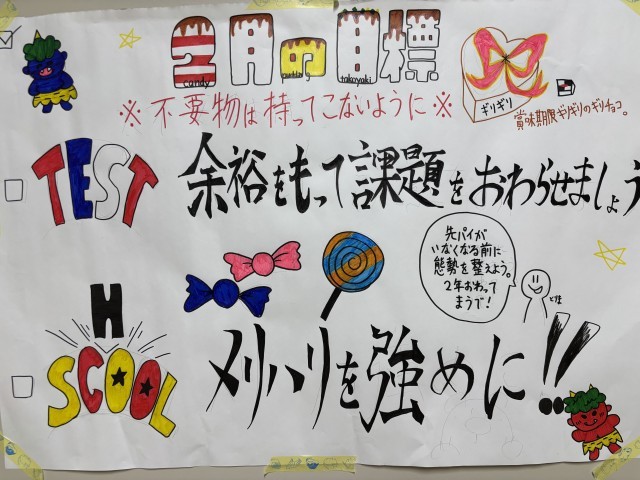 2月の目標
candy
takoyaki
※不要物は持ってこないように※
ギリギリ
賞味期限ギリギリのギリチョコ。
TEST
余裕をもって課題をおわらせましょう
先パイが
いなくなる前に
態勢を整えよう。
2年おわって
までで!
H
SCOOL
メリハリを強めに!!